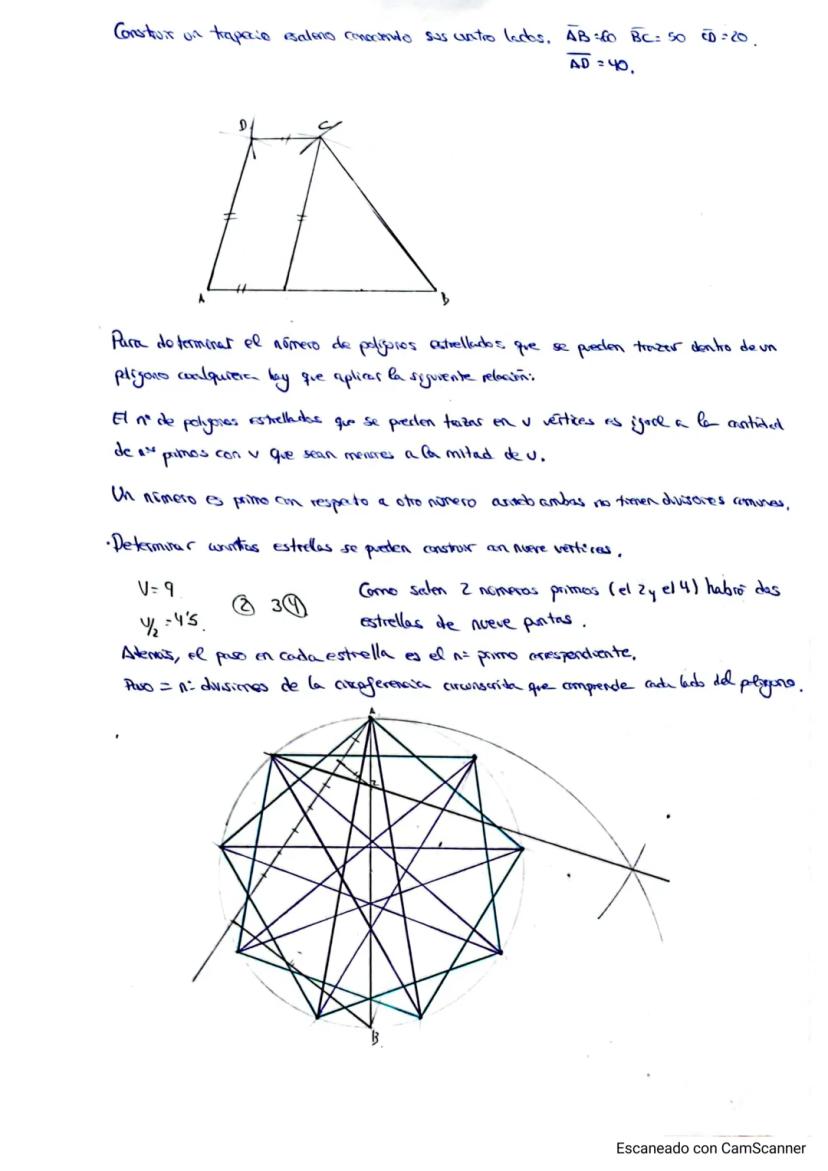 Construir un trapecio escaleno conociendo sus cuatro lados. AB=60 BC=50 CD=20.
AD=40.
D
C
A
B
Para determinar el número de polígonos estrellados que se pueden trazar dentro de un
plígono cualquiera hay que aplicar la siguiente relación:
El nº de polígonos estrellados que se pueden trazar en v vértices es igual a la cantidad
de nºs primos con v que sean menores a la mitad de v.
Un número es primo con respecto a otro número cuando ambos no tienen divisores comunes.
·Determinar cuántas estrellas se pueden construir con nueve vértices.
V=9
V/2=4'5
2 3 4
Como salen 2 números primos (el 2 y el 4) habrá dos
estrellas de nueve puntas.
Además, el paso en cada estrella es el nº primo correspondiente.
Paso = nº divisiones de la circunferencia circunscrita que comprende cada lado del polígono.
A
2
B
Escaneado con CamScanner